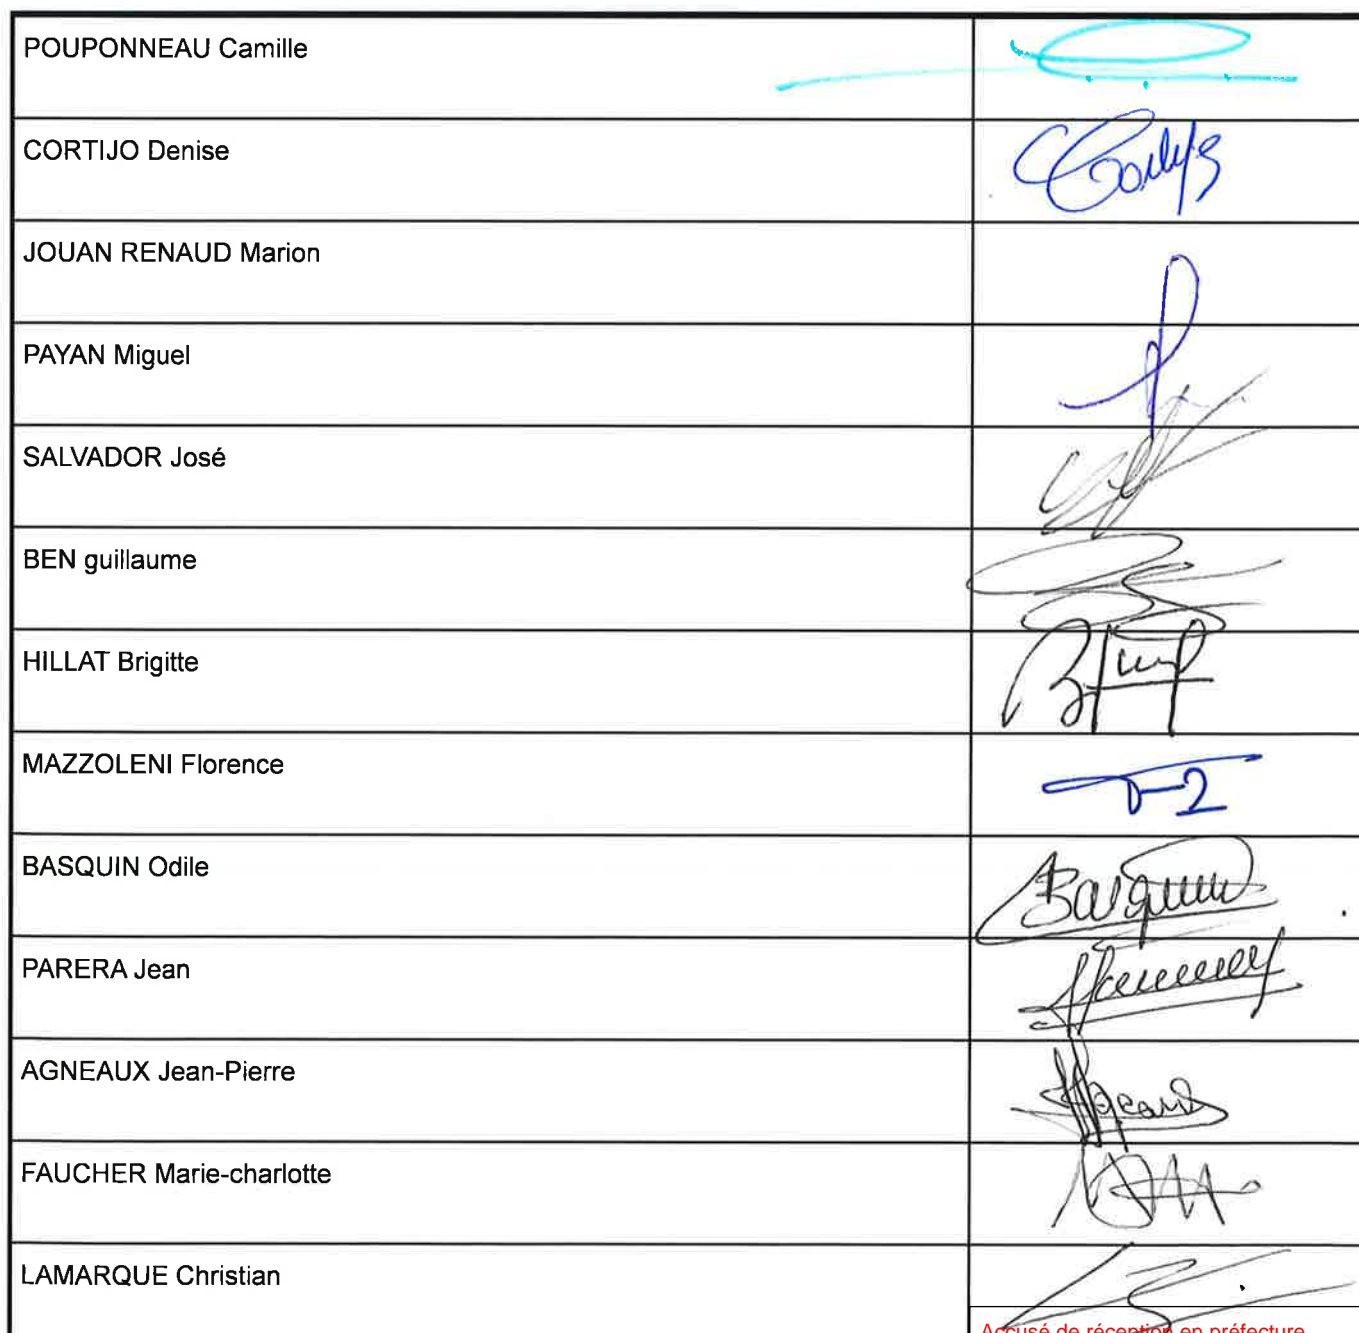 POUPONNEAU Camille
CORTIJO Denise
JOUAN RENAUD Marion
PAYAN Miguel
SALVADOR José
BEN guillaume
HILLAT Brigitte
MAZZOLENI Florence
BASQUIN Odile
PARERA Jean
AGNEAUX Jean-Pierre
FAUCHER Marie-charlotte
LAMARQUE Christian
Accusé de réception en préfecture